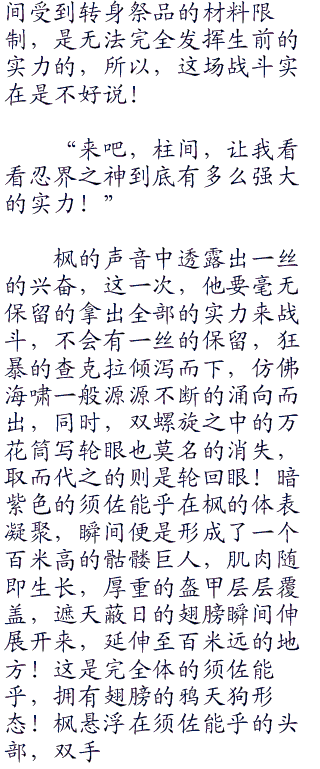 间受到转身祭品的材料限
制，是无法完全发挥生前的
实力的，所以，这场战斗实
在是不好说！
“来吧，柱间，让我看
看忍界之神到底有多么强大
的实力！”
枫的声音中透露出一丝
的兴奋，这一次，他要毫无
保留的拿出全部的实力来战
斗，不会有一丝的保留，狂
暴的查克拉倾泻而下，仿佛
海啸一般源源不断的涌向而
出，同时，双螺旋之中的万
花筒写轮眼也莫名的消失，
取而代之的则是轮回眼！暗
紫色的须佐能乎在枫的体表
凝聚，瞬间便是形成了一个
百米高的骷髅巨人，肌肉随
即生长，厚重的盔甲层层覆
盖，遮天蔽日的翅膀瞬间伸
展开来，延伸至百米远的地
方！这是完全体的须佐能
乎，拥有翅膀的鸦天狗形
态！枫悬浮在须佐能乎的头
部，双手